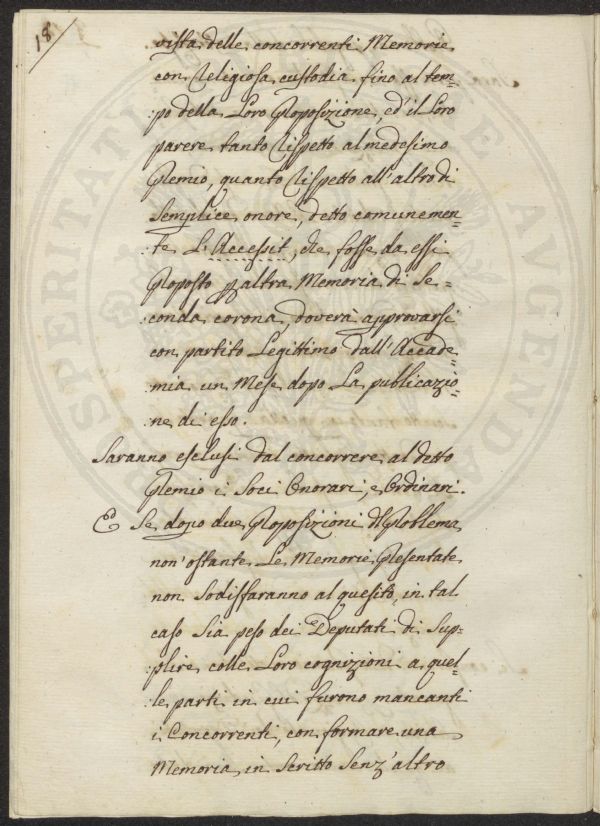 18
vista delle concorrenti Memorie
con Religiosa custodia fino al tem=
:po della Loro Proposizione, ed il Loro
parere tanto rispetto al medesimo
Premio, quanto rispetto all'altro di
semplice onore, detto comunemen=
:te L'Accessit, che fosse da essi
Proposto p altra Memoria di Se=
:conda corona, doverà approvarsi
con partito Legittimo dall'Accade=
:mia un Mese dopo La publicazio=
:ne di esso.
Saranno esclusi dal concorrere al detto
Premio i Soci Onorari, e Ordinari.
E Se dopo due Proposizioni del Problema
non'ostante Le Memorie Presentate
non Sodisfaranno al quesito, in tal
caso Sia peso dei Deputati di Sup=
:plire colle Loro cognizioni a quel=
:le parti in cui furono mancanti
i Concorrenti, con formare una
Memoria in Scritto Senz'altro
PROSPERITATI AVGENDAE